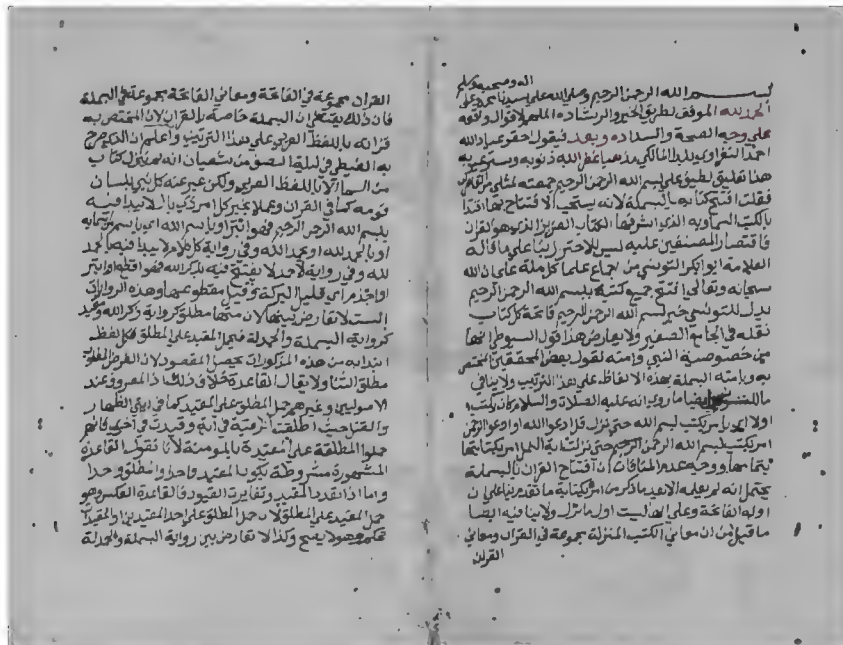 بسم الله الرحمن الرحيم وصلى الله على سيدنا محمد وعلى اله وصحبه وسلم
الحمد لله الموفق لطريق الخير والرشاد الملهم لاقوال واقعة
على وجه الصحة والسداد وبعد فيقول حقير عباد الله
احمد النفراوي بلدا المالكي مذهبا غفر الله ذنوبه وستر عيوبه
هذا تعليق لطيف على بسم الله الرحمن الرحيم جمعته لمثلي من القاصرين
فقلت افتتح كتابه بالبسملة لانه يستحب الافتتاح بها اقتدا
بالكتب السماوية الذي اشرفها الكتاب العزيز الذي هو القران
فاقتصار المصنفين عليه ليس للاحتراز بنا على ما قاله
العلامة ابو ابكر التونسي من اجماع علما كل ملة على ان الله
سبحانه وتعالى افتتح جميع كتبه ببسم الله الرحمن الرحيم
يدل للتونسي خبر بسم الله الرحمن الرحيم فاتحة كل كتاب
نقله في الجامع الصغير ولا يعارض هذا قول السيوطي انها
من خصوصية النبي وامته لقول بعض المحققين المختص
به وبامته البسملة بهذه الالفاظ على هذا الترتيب ولا ينافي
ايضا ما روي انه عليه الصلاة والسلام كان يكتب
اولا امر يكتب بسم الله حتى نزل قل ادعوا الله او ادعوا الرحمن
امر يكتب بسم الله الرحمن الرحيم حتى نزلت اية النمل امر بكتابتها
بتمامها ووجه عدم المنافات ان افتتاح القران بالبسملة
يحتمل انه لم يعلمه الا بعد ما ذكر من امر بكتابة ما تقدم بنا على ان
اوله الفاتحة وعلى انها ليست اول ما نزل ولا ينافيه ايضا
ما قيل من ان معاني الكتب المنزلة مجموعة في القران ومعاني
القران
القران مجموعة في الفاتحة ومعاني الفاتحة مجموعة في البسملة
فان ذلك يقتضي ان البسملة خاصة بالقران لان المختص به
قراته باللفظ العربي على هذا الترتيب واعلم ان الذي صرح
به الغيطي في ليلة النصف من شعبان انه لم ينزل كتاب
من السما الا باللفظ العربي ولكن عبر عنه كل نبي بلسان
قومه كما في القران وعملا بخبر كل امر ذي بال لا يبدا فيه
ببسم الله الرحمن الرحيم فهو ابتر او باسم الله اي باسم من اسمايه
او بالحمد لله او بحمد الله وفي رواية كل كلام لا يبدا فيه بالحمد
لله وفي رواية لاحمد لا يفتتح فيه بذكر الله فهو اقطع او ابتر
او اجذم اي قليل البركة وقيل مقطوعها وهذه الروايات
الست لا تعارض بينها لان منها مطلق كرواية ذكر الله ومقيد
كرواية البسملة والحمدلة فيحمل المقيد على المطلق فكل لفظ
ابتدا به من هذه المذكورات يحصل المقصود لان الغرض المطلوب
مطلق الثنا ولا يقال القاعدة خلاف ذلك اذ المعروف عند
الاصوليين وغيرهم حمل المطلق على المقيد كما في ايتي الظهار
والقتل حيث اطلقت الرقبة في اية وقيدت في اخرى فانهم
حملوا المطلقة على المقيدة بالمومنة لانا نقول القاعدة
المشهورة مشروطة بكون المقيد واحدا والمطلق واحدا
واما اذا تعدد المقيد وتغايرت القيود فالقاعدة العكس وهو
حمل المقيد على المطلق لان حمل المطلق على احد المقيدين او المقيدات
تحكم وهو لا يصح وكذا لا تعارض بين رواية البسملة والحمدلة